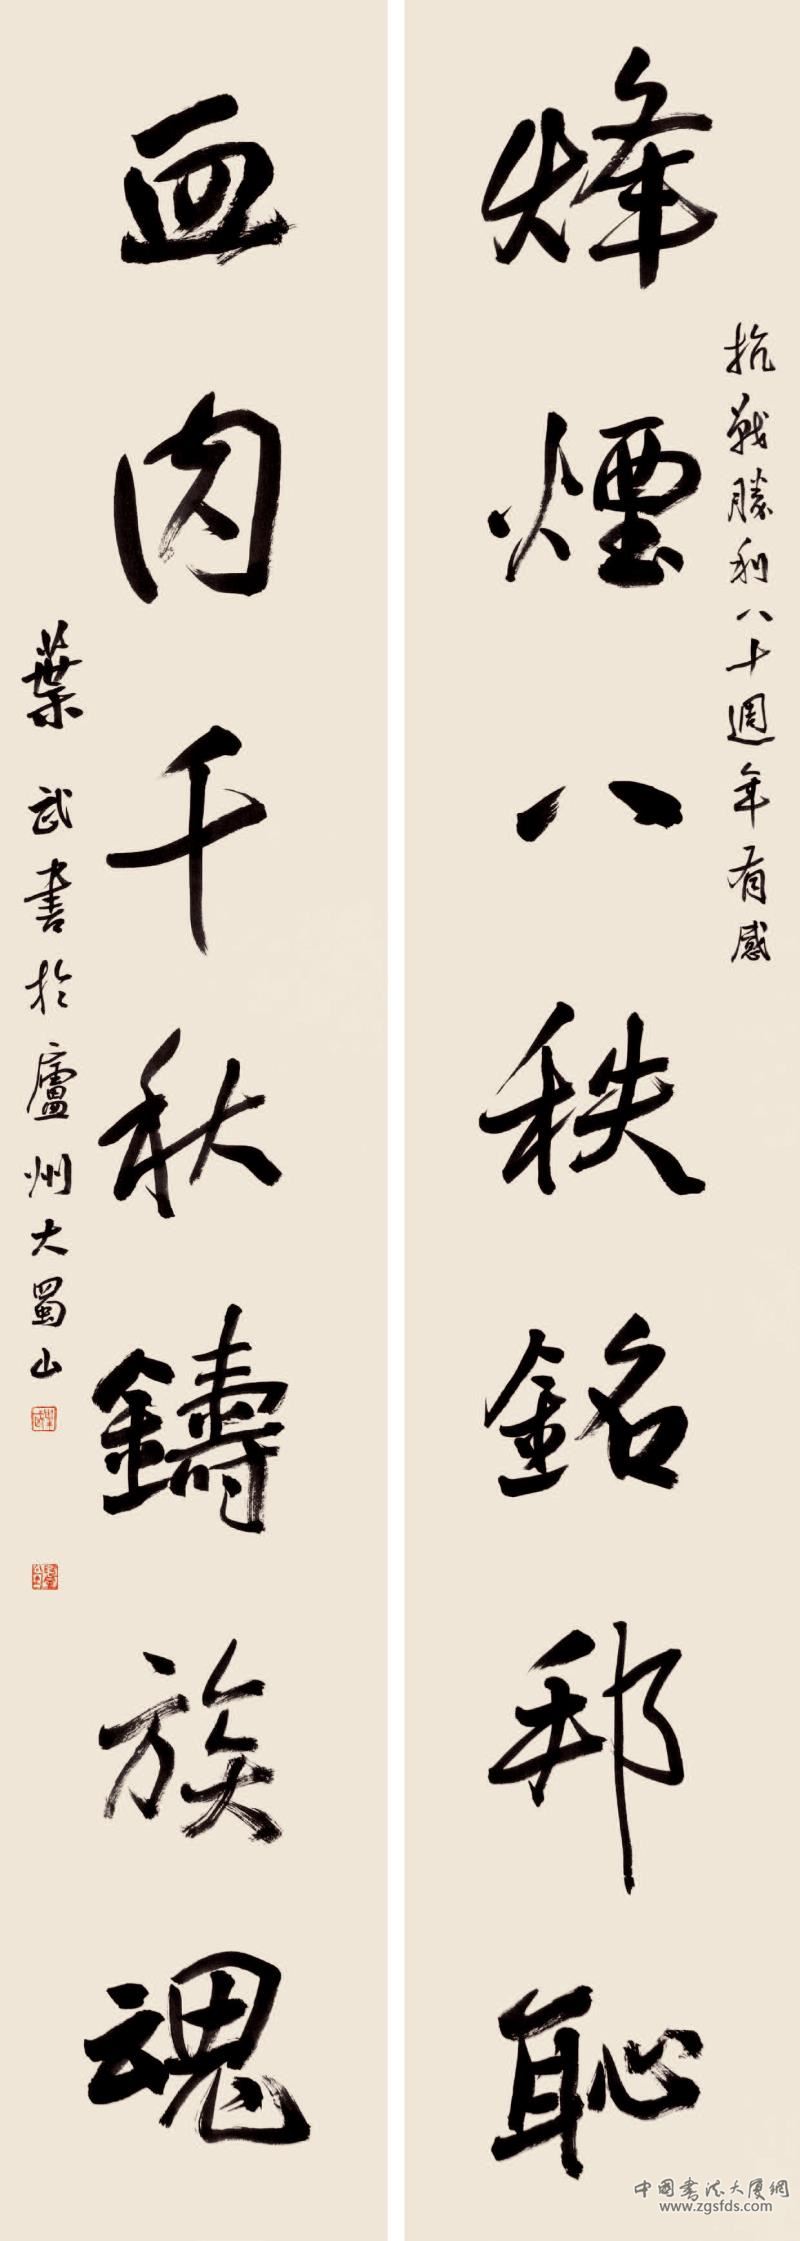 烽煙八秩銘邦恥
抗戰勝利八十週年有感
血肉千秋鑄族魂
葉武書於廬州大蜀山
中國書法大厦網
www.zgsfds.com